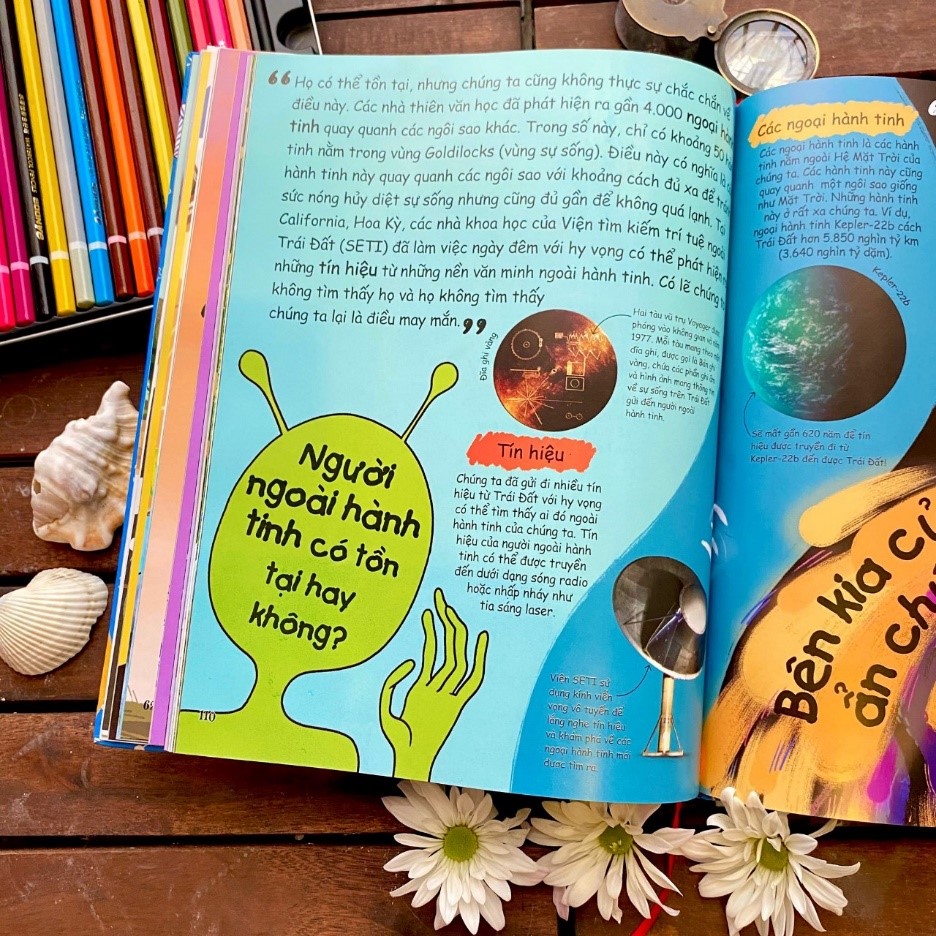 Họ có thể tồn tại, nhưng chúng ta cũng không thực sự chắc chắn về
điều này. Các nhà thiên văn học đã phát hiện ra gần 4.000 ngoại
tinh quay quanh các ngôi sao khác. Trong số này, chỉ có khoảng 50
tinh nằm trong vùng Goldilocks (vùng sự sống). Điều này có nghĩa là
hành tinh này quay quanh các ngôi sao với khoảng cách đủ xa để
sức nóng hủy diệt sự sống nhưng cũng đủ gần để không quá lạnh. Tại
California, Hoa Kỳ, các nhà khoa học của Viện tìm kiếm trí tuệ ngoài
Trái Đất (SETI) đã làm việc ngày đêm với hy vọng có thể phát hiện
những tín hiệu từ những nền văn minh ngoài hành tinh. Có lẽ chúng
không tìm thấy họ và họ không tìm thấy
chúng ta lại là điều may mắn.
Đĩa ghi vàng
Hai tàu vũ trụ Voyager được
phóng vào không gian vào năm
1977. Mỗi tàu mang theo một
đĩa ghi, được gọi là Bản ghi
vàng, chứa các phần ghi âm
và hình ảnh mang thông tin
về sự sống trên Trái Đất
gửi đến người ngoài
hành tinh.
Người
ngoài hành
tinh có tồn
tại hay
không?
Tín hiệu
Chúng ta đã gửi đi nhiều tín
hiệu từ Trái Đất với hy vọng
có thể tìm thấy ai đó ngoài
hành tinh của chúng ta. Tín
hiệu của người ngoài hành
tinh có thể được truyền
đến dưới dạng sóng radio
hoặc nhấp nháy như
tia sáng laser.
Viện SETI sử
dụng kính viễn
vọng vô tuyến để
lắng nghe tín hiệu
và khám phá về các
ngoại hành tinh mới
được tìm ra.
110
Các ngoại hành tinh
Các ngoại hành tinh là các hành
tinh nằm ngoài Hệ Mặt Trời của
chúng ta. Các hành tinh này cũng
quay quanh một ngôi sao giống
như Mặt Trời. Những hành tinh
này ở rất xa chúng ta. Ví dụ,
ngoại hành tinh Kepler-22b cách
Trái Đất hơn 5.850 nghìn tỷ km
(3.640 nghìn tỷ dặm).
Kepler-22b
Sẽ mất gần 620 năm để tín
hiệu được truyền đi từ
Kepler-22b đến được Trái Đất!
Bên kia
ẩn